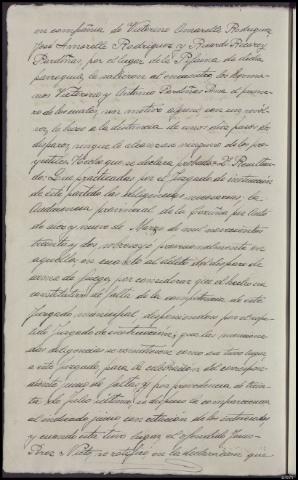 en compañia de Victorino Amarelle Rodriguez
José Amarelle Rodriguez y Ricardo Rey
Pardiñas, por el lugar de la de dicha
parroquia, le salieron al encuentro los herma-
nos Victorino y Antonio Pardiñas el prime-
ro de los cuales, sin motivo alguno, con un revól-
ver, le hizo a la distancia de unos diez pasos dos
disparos, sin que le alcanzara ninguno de los pro-
yectiles. Hecho que se declara probado = 2º Resultan-
do: Que practicadas por el Juzgado de instrucción
de este partido las diligencias necesarias, la
Audiencia provincial de la Coruña por auto
de veinte y nueve de Marzo de mil novecientos
treinta y dos sobreseyo provisionalmente en
aquellas en cuanto al delito de disparo de
arma de fuego, por considerar que el hecho era
constitutivo de falta de la competencia de este
Juzgado municipal, disponiendose por el repe-
tido Juzgado de instrucción, que las menciona-
das diligencias se remitieran como así tuvo lugar
a este Juzgado, para la celebración del correspon-
diente juicio de faltas, y por providencia de trein-
ta de Julio último, se dispuso la comparecencia
al indicado juicio con citación de los interesados
y cuando este tuvo lugar el ofendido Jesus
Perez Nieto, se ratificó en la declaración que